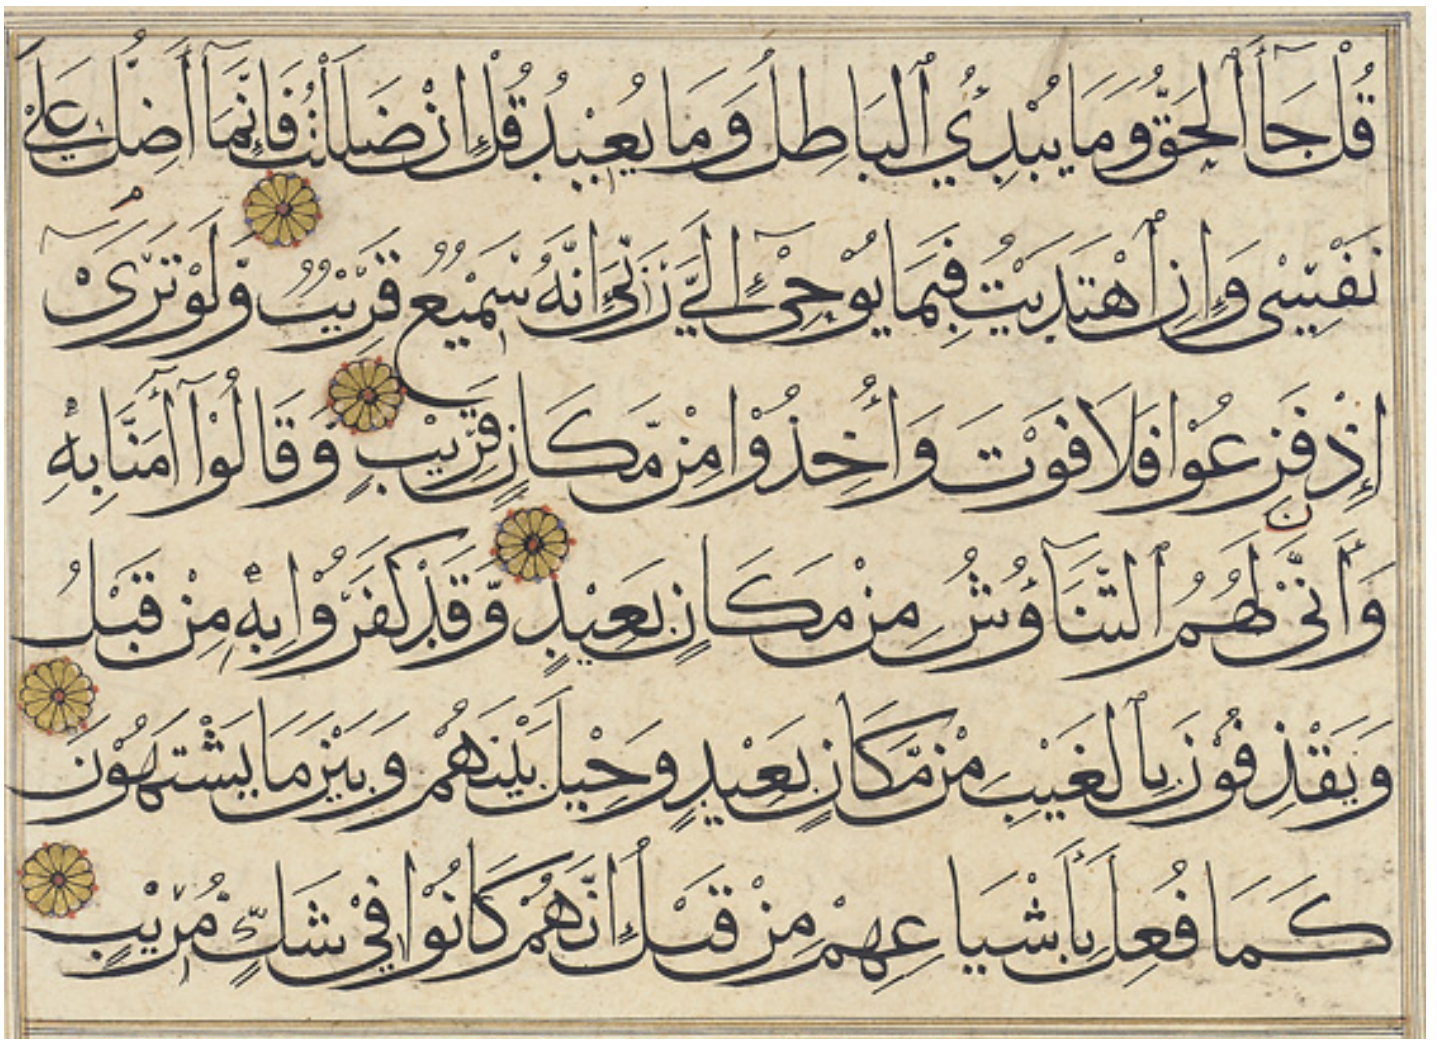 قُلْ جَآءَ ٱلْحَقُّ وَمَا يُبْدِئُ ٱلْبَاطِلُ وَمَا يُعِيْدُ قُلْ إِنْ ضَلَلْتُ فَإِنَّمَآ أَضِلُّ عَلٰى
نَفْسِىْ وَإِنِ ٱهْتَدَيْتُ فَبِمَا يُوْحِىْٓ إِلَيَّ رَبِّىْ إِنَّهُ سَمِيْعٌ قَرِيْبٌ وَلَوْ تَرَىْٓ
إِذْ فَزِعُوْا فَلَا فَوْتَ وَأُخِذُوْا مِنْ مَّكَانٍ قَرِيْبٍ وَقَالُوْٓا اٰمَنَّا بِهِ
وَأَنّٰى لَهُمُ ٱلتَّنَاؤُشُ مِنْ مَكَانٍ بَعِيْدٍ وَّقَدْ كَفَرُوْا بِهِ مِنْ قَبْلُ
وَيَقْذِفُوْنَ بِٱلْغَيْبِ مِنْ مَّكَانٍ بَعِيْدٍ وَحِيْلَ بَيْنَهُمْ وَبَيْنَ مَا يَشْتَهُوْنَ
كَمَا فُعِلَ بِأَشْيَاعِهِمْ مِنْ قَبْلُ إِنَّهُمْ كَانُوْا فِيْ شَكٍّ مُّرِيْبٍ